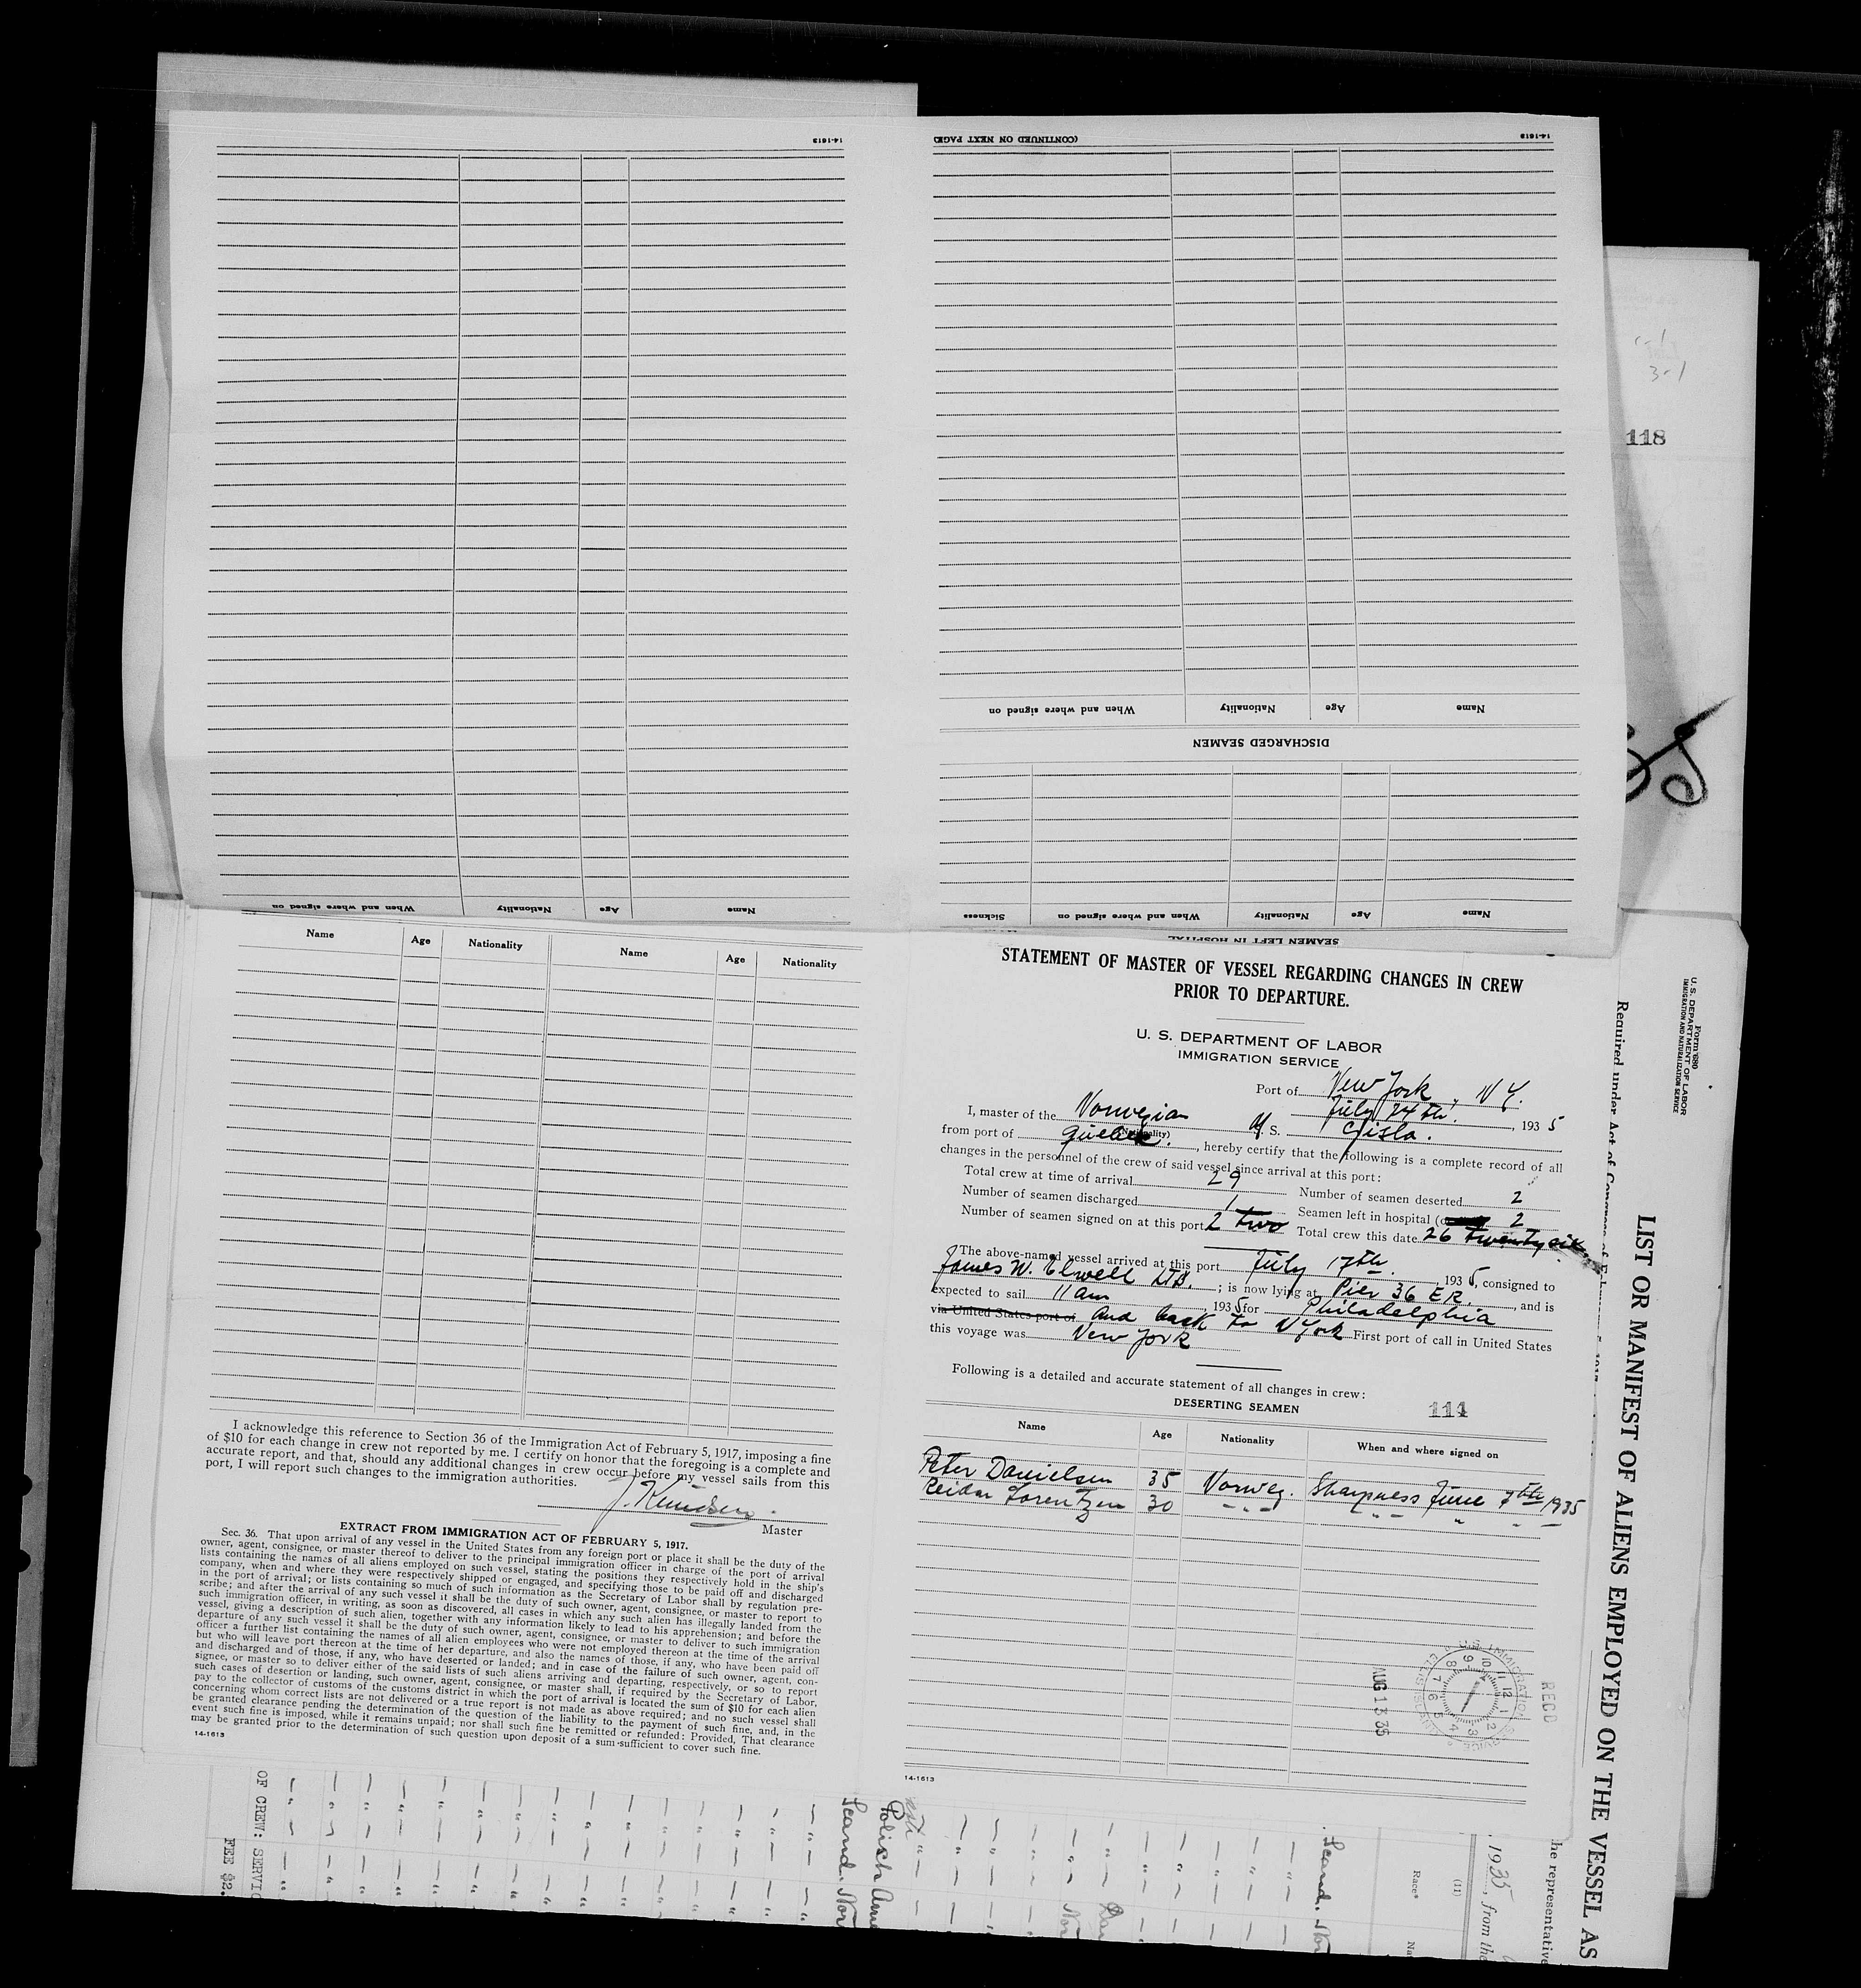 14-1613
(CONTINUED ON NEXT PAGE)
14-1613
When and where signed on Nationality Age Name
DISCHARGED SEAMEN
Sickness When and where signed on Nationality Age Name
SEAMEN LEFT IN HOSPITAL
When and where signed on Nationality Age Name
118
Name Age Nationality Name Age Nationality
I acknowledge this reference to Section 36 of the Immigration Act of February 5, 1917, imposing a fine
of $10 for each change in crew not reported by me. I certify on honor that the foregoing is a complete and
accurate report, and that, should any additional changes in crew occur before my vessel sails from this
port, I will report such changes to the immigration authorities.
J. Knudsen
Master
EXTRACT FROM IMMIGRATION ACT OF FEBRUARY 5, 1917.
Sec. 36. That upon arrival of any vessel in the United States from any foreign port or place it shall be the duty of the
owner, agent, consignee, or master thereof to deliver to the principal immigration officer in charge of the port of arrival
lists containing the names of all aliens employed on such vessel, stating the positions they respectively hold in the ship's
company, when and where they were respectively shipped or engaged, and specifying those to be paid off and discharged
in the port of arrival; or lists containing so much of such information as the Secretary of Labor shall by regulation pre-
scribe; and after the arrival of any such vessel it shall be the duty of such owner, agent, consignee, or master to report to
such immigration officer, in writing, as soon as discovered, all cases in which any such alien has illegally landed from the
vessel, giving a description of such alien, together with any information likely to lead to his apprehension; and before the
departure of any such vessel it shall be the duty of such owner, agent, consignee, or master to deliver to such immigration
officer a further list containing the names of all alien employees who were not employed thereon at the time of the arrival
but who will leave port thereon at the time of her departure, and also the names of those, if any, who have been paid off
and discharged and of those, if any, who have deserted or landed; and in case of the failure of such owner, agent, con-
signee, or master so to deliver either of the said lists of such aliens arriving and departing, respectively, or so to report
such cases of desertion or landing, such owner, agent, consignee, or master, shall, if required by the Secretary of Labor,
pay to the collector of customs of the customs district in which the port of arrival is located the sum of $10 for each alien
concerning whom correct lists are not delivered or a true report is not made as above required; and no such vessel shall
be granted clearance pending the determination of the question of the liability to the payment of such fine, and, in the
event such fine is imposed, while it remains unpaid; nor shall such fine be remitted or refunded: Provided, That clearance
may be granted prior to the determination of such question upon deposit of a sum sufficient to cover such fine.
14-1613
STATEMENT OF MASTER OF VESSEL REGARDING CHANGES IN CREW
PRIOR TO DEPARTURE.
U. S. DEPARTMENT OF LABOR
IMMIGRATION SERVICE
Port of New York, N Y.
July 24th, 1935
I, master of the Norwegian M. S. Gisla.
(Nationality)
from port of Quebec., hereby certify that the following is a complete record of all
changes in the personnel of the crew of said vessel since arrival at this port:
Total crew at time of arrival 29 Number of seamen deserted 2
Number of seamen discharged 1 Seamen left in hospital 2
Number of seamen signed on at this port 2 two Total crew this date 26 twenty six
The above-named vessel arrived at this port July 17th, 1935, consigned to
James W. Elwell LTD.; is now lying at Pier 36 E R., and is
expected to sail 11 am, 1935 for Philadelphia
via United States port of and back to N York First port of call in United States
this voyage was New York
Following is a detailed and accurate statement of all changes in crew:
DESERTING SEAMEN
114
Name Age Nationality When and where signed on
Peter Danielsen 35 Norweg. Sharpness June 7th 1935
Reidar Lorentzen 30 -"- -"- " " -
RECD
U.S. IMMIGRATION SERVICE
ELLIS ISLAND
AUG 13 35
14-1613
Form 680
U. S. DEPARTMENT OF LABOR
IMMIGRATION AND NATURALIZATION SERVICE
LIST OR MANIFEST OF ALIENS EMPLOYED ON THE VESSEL AS
Required under Act of Congress of
he representative
, 1935, from the
(11)
Race*
Scand. Nor
Polish Ame
Scand. Nor
OF CREW: SERVIC
FEE $2.